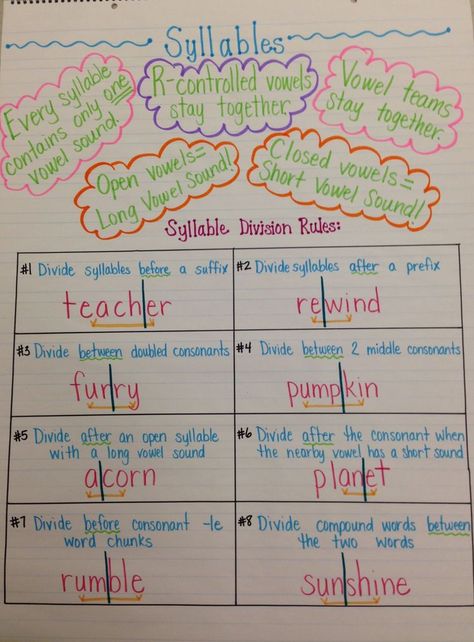 Syllables
Every syllable
contains only one
vowel sound.
R-controlled vowels
stay together.
Vowel teams
stay together.
Open vowels=
Long Vowel Sound!
Closed vowels=
Short Vowel Sound!
Syllable Division Rules:
#1 Divide syllables before a suffix
teacher
#2 Divide syllables after a prefix
rewind
#3 Divide between doubled consonants
furry
#4 Divide between 2 middle consonants
pumpkin
#5 Divide after an open syllable
with a long vowel sound
acorn
#6 Divide after the consonant when
the nearby vowel has a short sound
planet
#7 Divide before consonant -le
word chunks
rumble
#8 Divide compound words between
the two words
sunshine